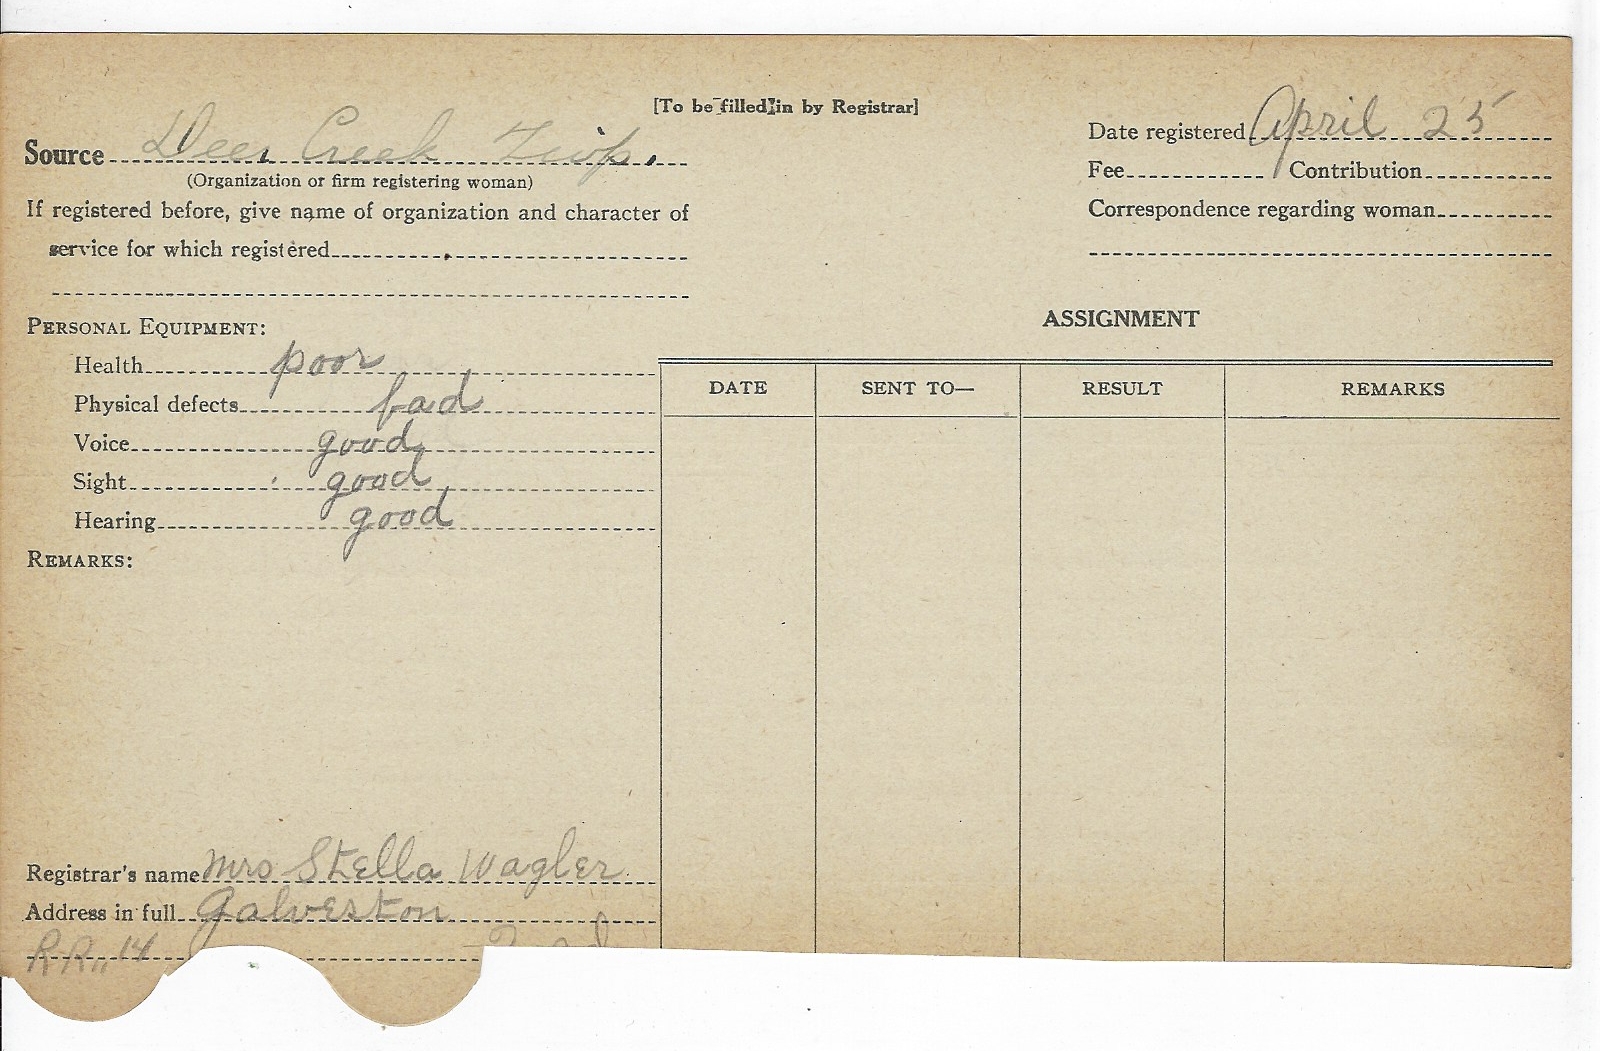 [To be filled in by Registrar]
Source Deer Creek Twp.
(Organization or firm registering woman)
If registered before, give name of organization and character of
service for which registered
Date registered April 25
Fee Contribution
Correspondence regarding woman
PERSONAL EQUIPMENT:
Health poor
Physical defects bad
Voice good
Sight good
Hearing good
REMARKS:
ASSIGNMENT
DATE SENT TO— RESULT REMARKS
Registrar's name Mrs Stella Wagler
Address in full Galveston
R R 14